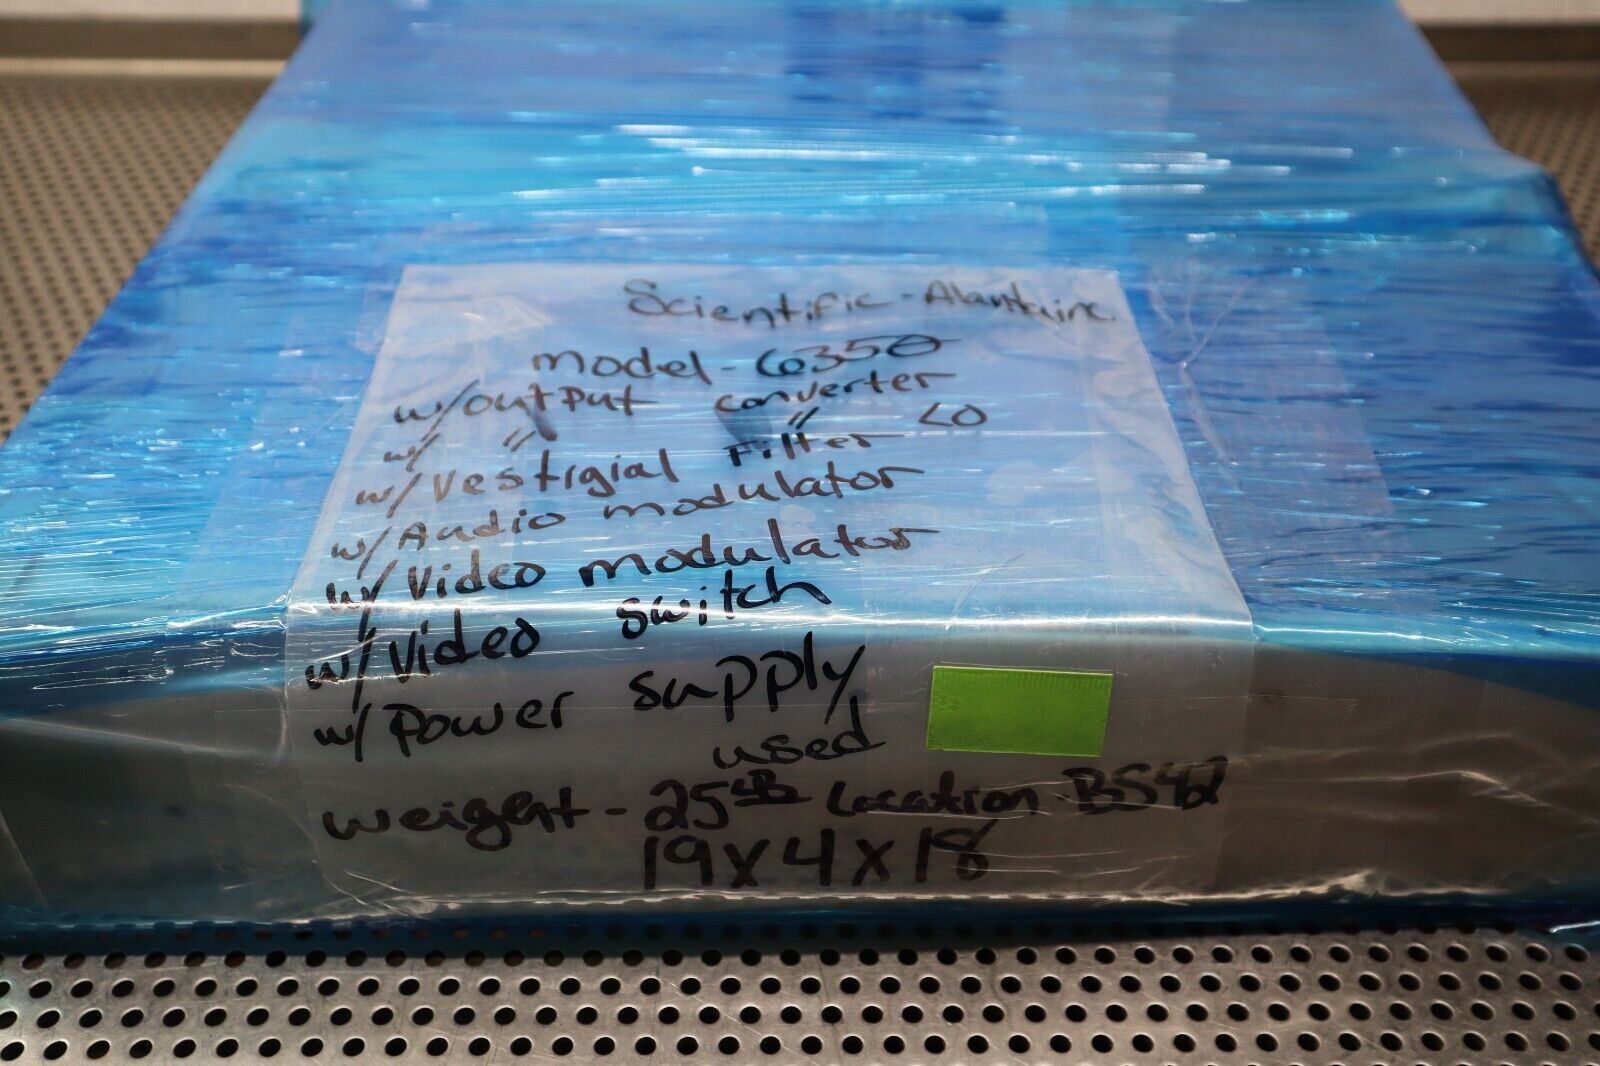 Scientific-Atlanta inc.
model-6350
w/output converter
w/ " " LO
w/Vestigial Filter
w/Audio modulator
w/Video modulator
w/Video switch
w/Power supply
used
weight-25LB Location-BS42
19x4x18